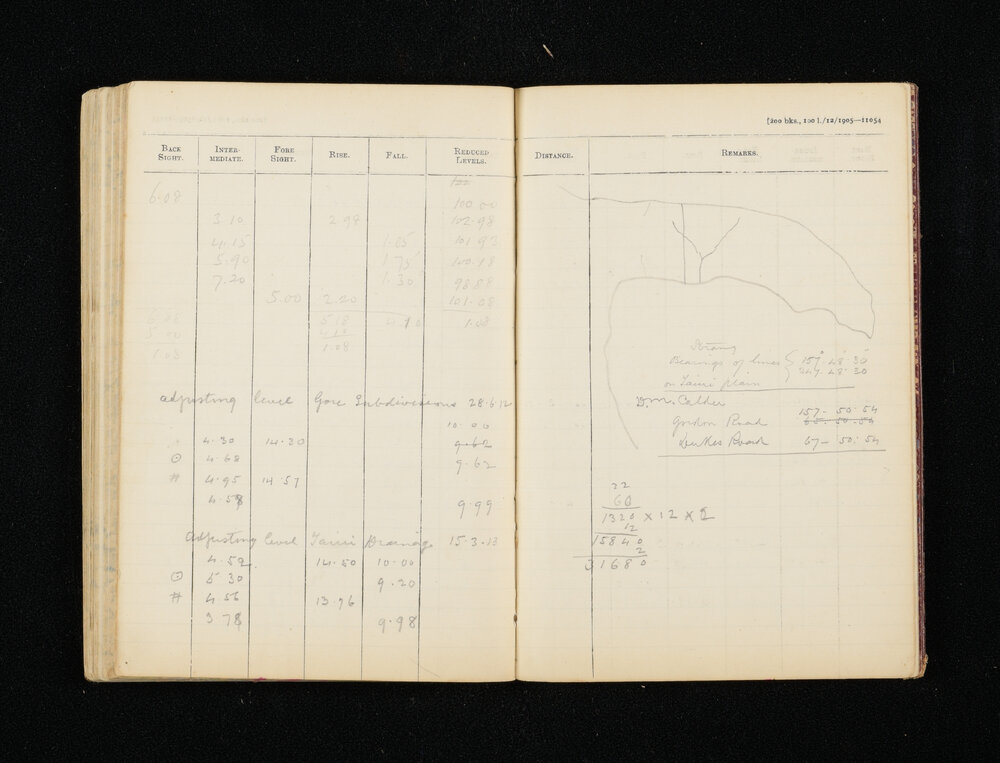 BACK SIGHT. INTER- MEDIATE. FORE SIGHT. RISE. FALL. REDUCED LEVELS.
100
6.08 100.00
3.10 2.98 102.98
4.15 1.05 101.93
5.90 1.75 100.18
7.20 1.30 98.88
5.00 2.20 101.08
6.08 5.18 4.10 1.08
5.00 4.10
1.08 1.08
Adjusting level Gore Subdivisions 28.6.12
10.00
4.30 14.30 9.62
⊙ 4.68 9.62
# 4.95 14.57
4.58 9.99
Adjusting level Taieri Drainage 15.3.13
4.50 14.50 10.00
⊙ 5.30 9.20
# 4.56 13.76
3.78 9.98
[200 bks., 100 l./12/1905—11054
DISTANCE. REMARKS.
Bearings of lines { 157° 48' 30
247. 48. 30
on Taieri plain
D.M. Calder
157- 50. 54
Gordon Road 65. 50. 54
Road 67- 50. 54
22
60
1320 × 12 × 2
12
15840
2
31680